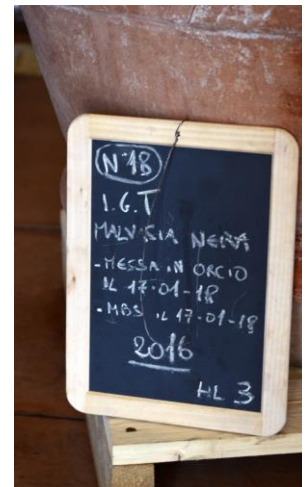 N°18
I.G.T
MALVASIA NERA
-MESSA IN ORCIO
IL 17-01-18
-MBS IL 17-01-18
2016
HL 3